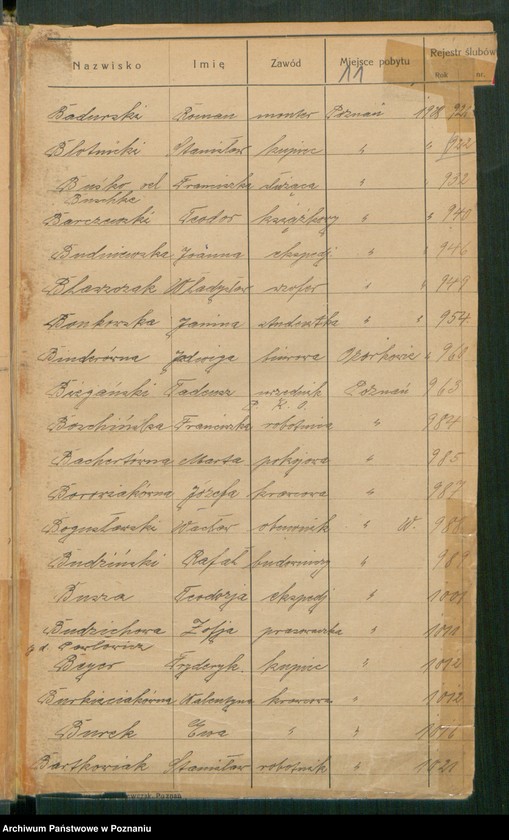 Nazwisko Imię Zawód Miejsce pobytu Rejestr ślubów
Rok nr.
11
Badurski Roman monter Poznań 1928
Błotnicki Stanisław kupiec " " 932
Buśko vel Franciszka służąca " " 932
Buschke
Barczewski Teodor książkowy " " 940
Budniewska Joanna ekspedj " " 946
Błaszczak Władysław szofer " " 949
Bonkowska Janina studentka " " 954
Binderówna Jadwiga biurowa " 960
Biegański Tadeusz urzędnik Poznań 963
P. K. O.
Franciszka robotnica " 984
Bachertówna Marta pokojowa " 985
Borowiakówna Józefa krawcowa " 987
Bogusławski Wacław obuwnik " W. 988
Budziński Rafał budowniczy " 989
Busza Teodozja ekspedj " 1001
Budzichowa Zofja prasowaczka " 1010
z d. Pawłowicz
Beyer Fryderyk. kupiec " 1012
Walentyna krawcowa " 1012
Burek Ewa " " 1016
Bartkowiak Stanisław robotnik " 1021
Poznań
Archiwum Państwowe w Poznaniu